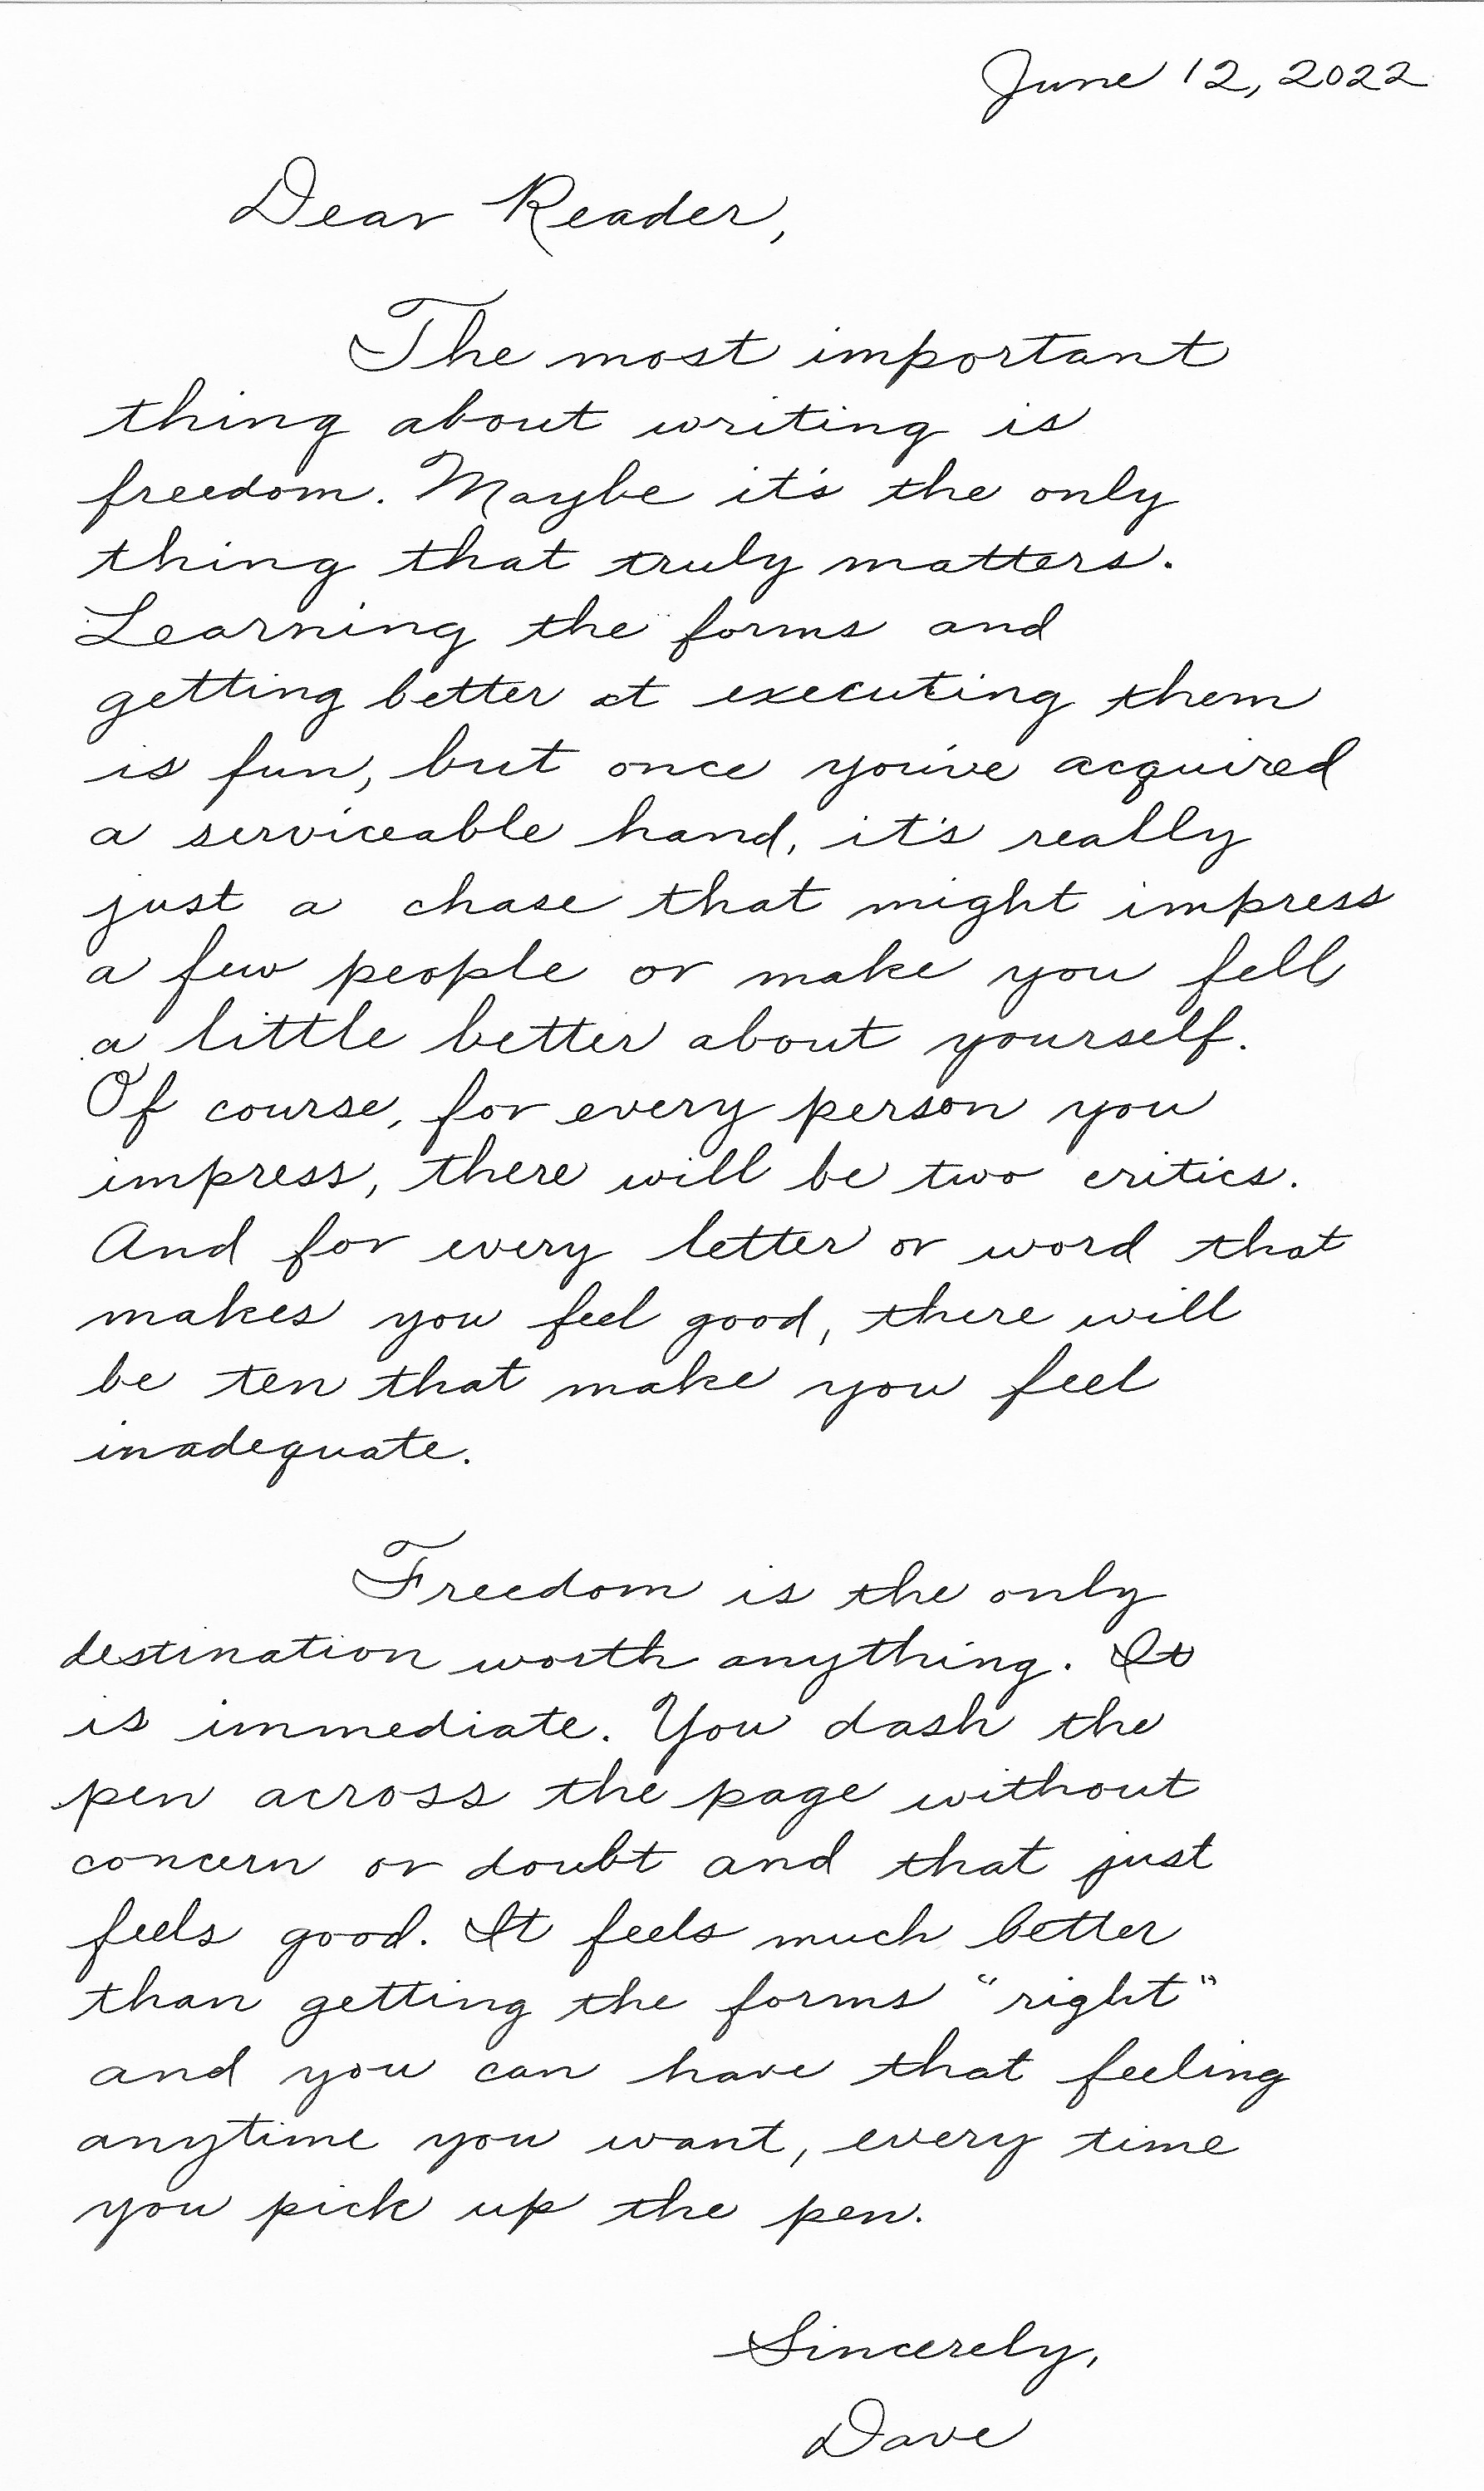 June 12, 2022
Dear Reader,
The most important
thing about writing is
freedom. Maybe it's the only
thing that truly matters.
Learning the forms and
getting better at executing them
is fun, but once you've acquired
a serviceable hand, it's really
just a chase that might impress
a few people or make you fell
a little better about yourself.
Of course, for every person you
impress, there will be two critics.
And for every letter or word that
makes you feel good, there will
be ten that make you feel
inadequate.
Freedom is the only
destination worth anything. It
is immediate. You dash the
pen across the page without
concern or doubt and that just
feels good. It feels much better
than getting the forms "right"
and you can have that feeling
anytime you want, every time
you pick up the pen.
Sincerely,
Dave